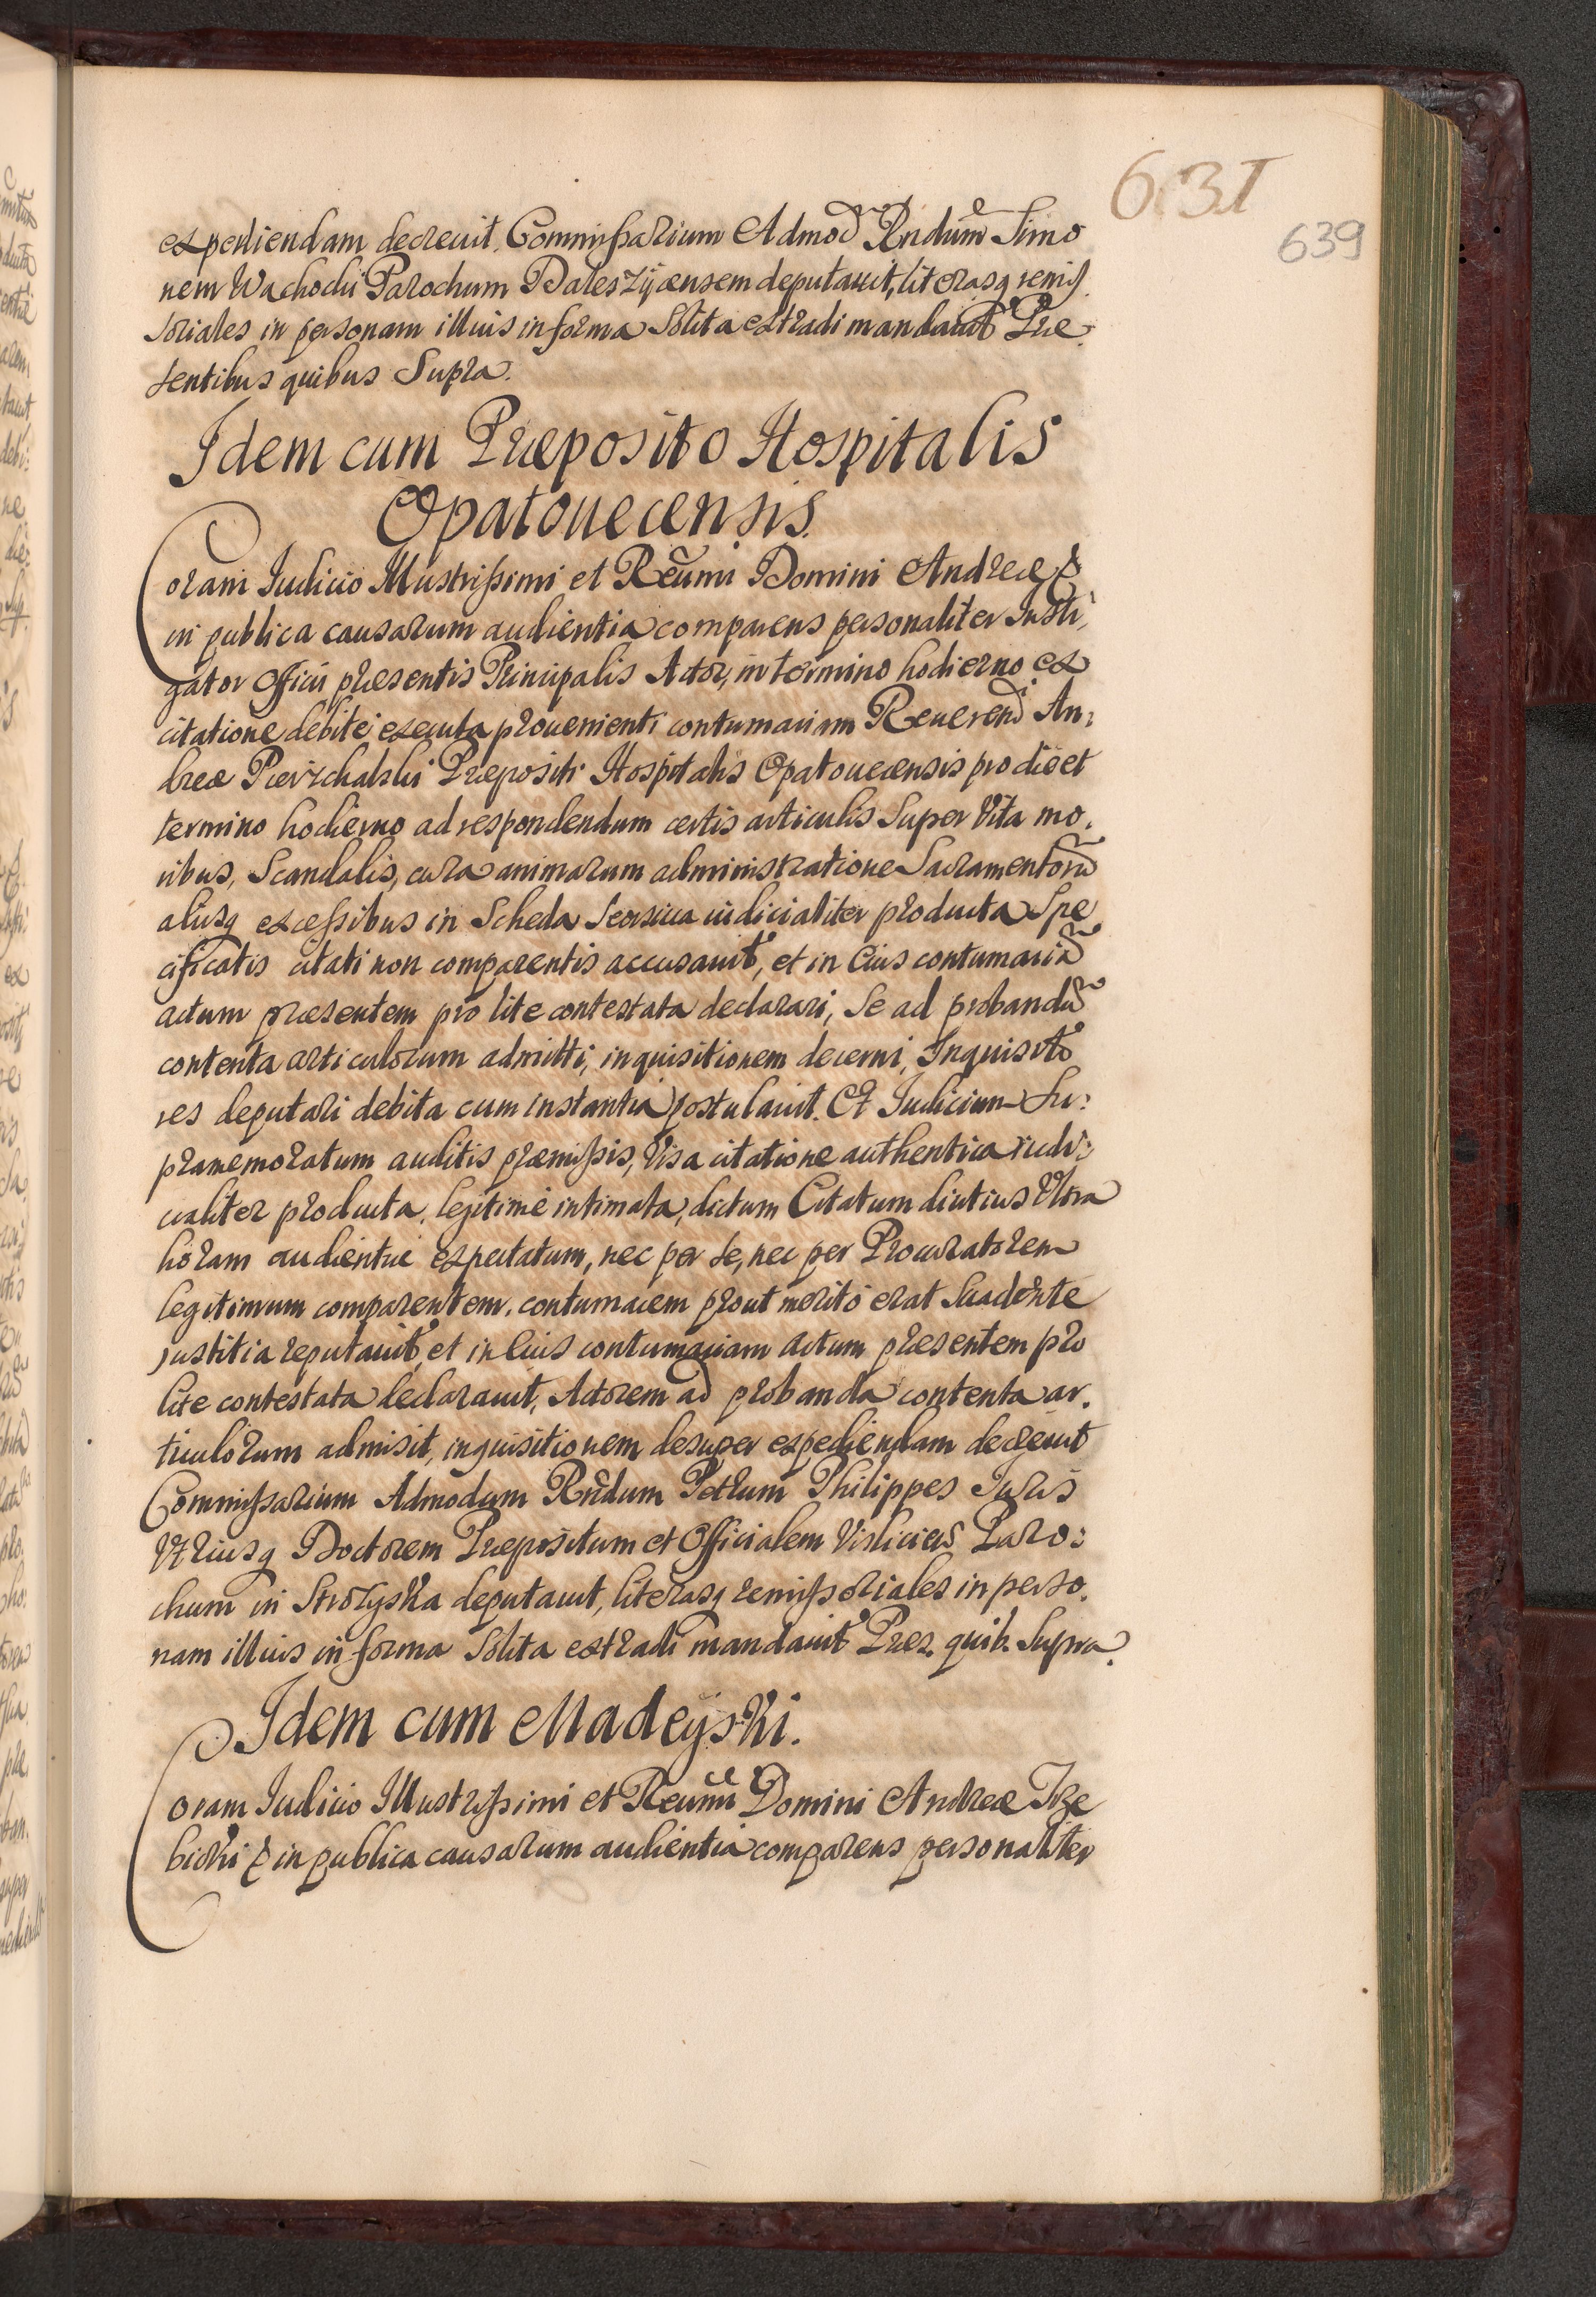 631
639
expediendam decreuit. Commissarium Admod Rndum Simo
nem Wachocki Parochum Daleszyčensem deputauit, literasq remis
soriales in personam illius in forma solita extradi mandauit Præ
sentibus quibus Supra.
Idem cum Præposito Hospitalis
Opatouecensis.
Coram Iudicio Illustrissimi et Reumi Domini Andreæ &
in publica causarum audientia comparens personaliter Insti,
gator Officii præsentis Principalis Actor, in termino hodierno ex
citatione debite executa prouenienti contumaciam Reuerend An:
dreæ Pierzchalski Præpositi Hospitalis Opatouecensis pro die et
termino hodierno ad respondendum certis articulis Super Vita mo,
ribus, Scandalis, cura animarum administratione Sacramentorū
aliisq excessibus in Scheda Seorsiua iudicialiter producta Spe
cificatis citati non comparentis accusauit, et in Eius contumaciā
actum præsentem pro lite contestata declarari, Se ad probandū
contenta articulorum admitti, inquisitionem decerni, Inquisito
res deputari debita cum instantia postulauit. Et Iudicium Su:
pramemoratum auditis præmissis, Visa citatione authentica iudi:
cialiter producta, legitime intimata, dictum Citatum diutius Vltra
horam audientiæ expectatum, nec per se, nec per Procuratorem
legitimum comparentem, contumacem prout merito erat Suadente
justitia reputauit, et in Eius contumaciam actum præsentem pro
lite contestata declarauit, Actorem ad probanda contenta ar,
ticulorum admisit, inquisitionem desuper expediendam decreuit
Commissarium Admodum Rndum Petrum Philippes Iuris
Vtriusq Doctorem Præpositum et Officialem Vislicien Paro:
chum in Strozyska deputauit, literasq remissoriales in perso,
nam illius in forma Solita extradi mandauit Præs. quib. Supra.
Idem cum Madeyski.
Coram Iudicio Illustrissimi et Reumi Domini Andreæ Trze
bicki & in publica causarum audientia comparens personaliter